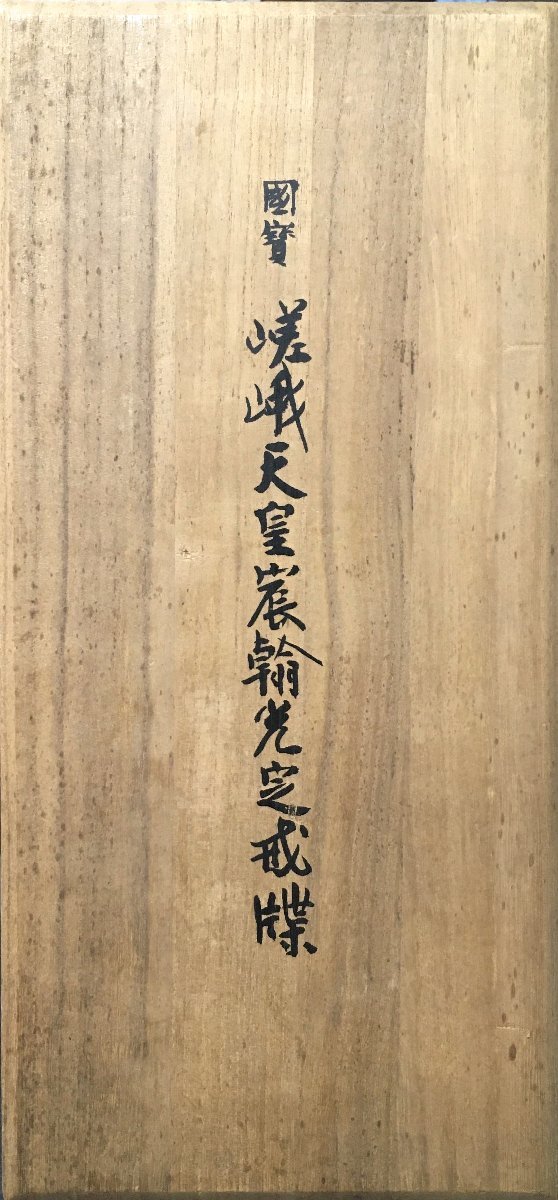 國寶 嵯峨天皇宸翰光定戒牒